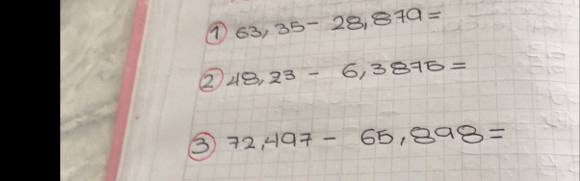 ① 63,35 - 28,879 =
② 48,23 - 6,3875 =
③ 72,497 - 65,898 =